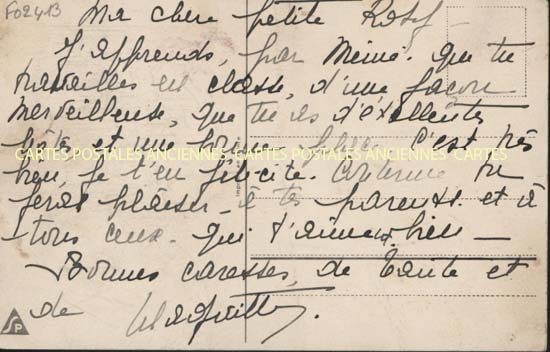 F02413
Ma chère petite Rosy -
J'apprends, par Mémé. que tu
travailles en classe, d'une façon
merveilleuse, que tu as d'excellentes
et une
CARTES POSTALES ANCIENNES CARTES POSTALES ANCIENNES CARTES
C'est très
bien, je t'en félicite. Continue tu
feras plaisir - à tes parents. et à
tous ceux. qui t'aiment bien -
Bonnes caresses, de Tante et
de